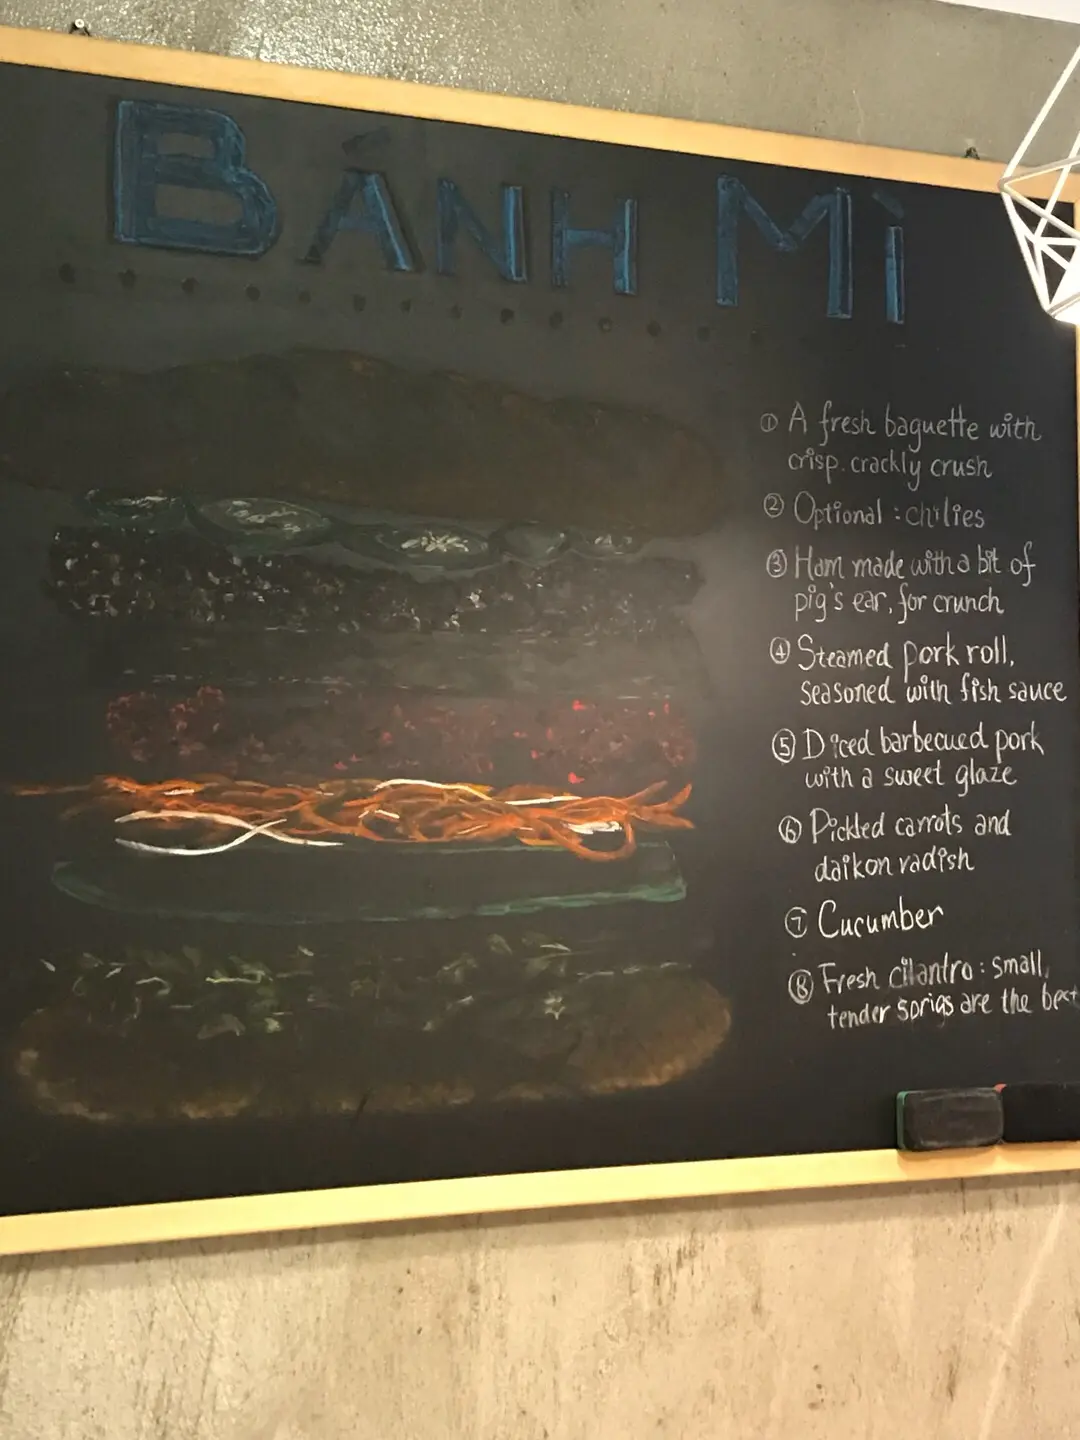 BÁNH MÌ
① A fresh baguette with
crisp. crackly crush
② Optional : chilies
③ Ham made with a bit of
pig's ear, for crunch
④ Steamed pork roll,
seasoned with fish sauce
⑤ Diced barbecued pork
with a sweet glaze
⑥ Pickled carrots and
daikon radish
⑦ Cucumber
⑧ Fresh cilantro : small,
tender sprigs are the best